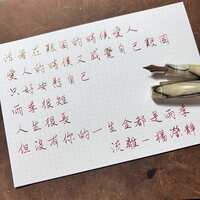 活著在艱困的時候愛人
愛人的時候又感覺自己艱困
只好安慰自己
雨季很短
人生很長
但沒有你的一生全都是雨季
流離—楊瀅靜